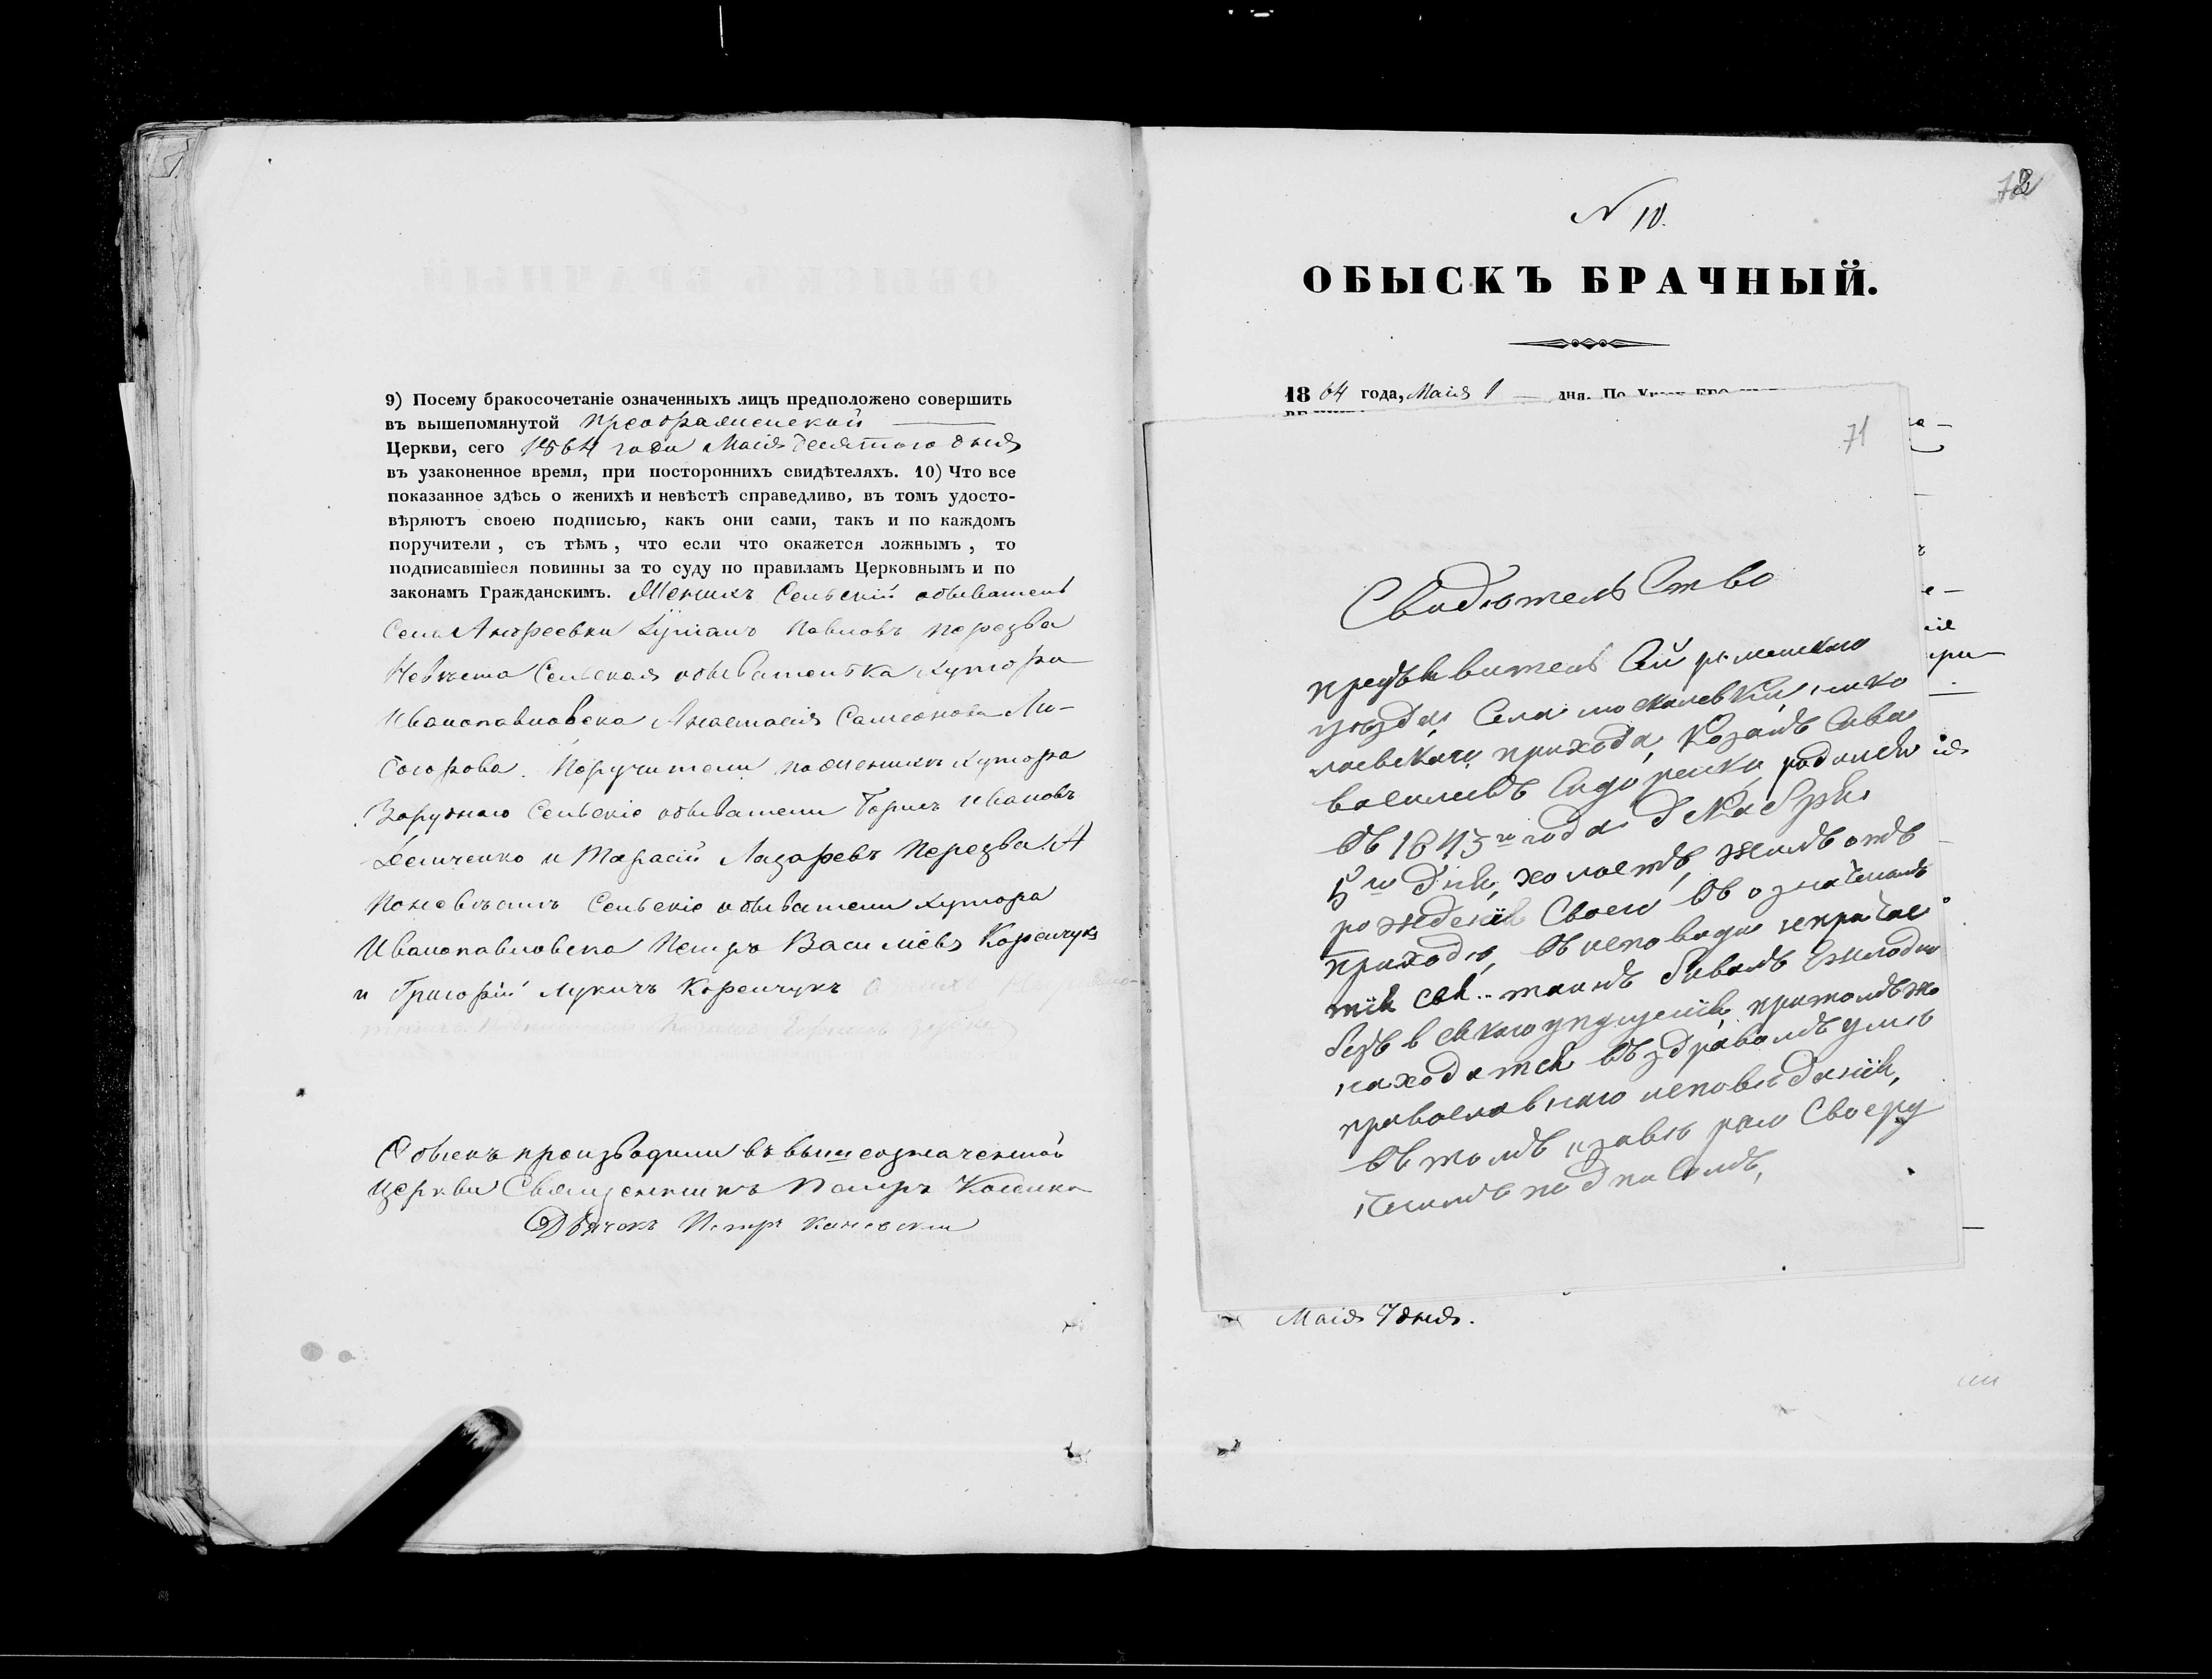 9) Посему бракосочетаніе означенныхъ лицъ предположено совершить
въ вышепомянутой Преображенской
Церкви, сего 1864 года Маія десятого дня
въ узаконенное время, при постороннихъ свидѣтеляхъ. 10) Что все
показанное здѣсь о женихѣ и невѣстѣ справедливо, въ томъ удосто-
вѣряютъ своею подписью, какъ они сами, такъ и по каждомъ
поручители, съ тѣмъ, что если что окажется ложнымъ, то
подписавшіеся повинны за то суду по правиламъ Церковнымъ и по
законамъ Гражданскимъ. Женихъ Сельскій обыватель
Села Андреевки Павловъ Перезва
Невѣста Сельская обывателька Хутора
Иванопавловска Анастасія Самсонова Ли-
согорова. Поручители по женихѣ Хутора
Заруднаго Сельскіе обыватели Борисъ Ивановъ
Демченко и Тарасій Лазаревъ Перезва. А
По невѣстѣ Сельскіе обыватели Хутора
Иванопавловска Петръ Василіевъ Коренчукъ
и Григорій Лукичъ Коренчукъ
Обыскъ производили въ вышеозначенной
Церкви Священникъ Петръ
Дьячокъ Петръ Каневскій
72
N 10.
ОБЫСКЪ БРАЧНЫЙ.
1864 года, Маія 1 дня. По
71
Свидѣтельство
предъявитель сей роменскаго
уѣзда, Села москалевки, нико
лаевскаго прихода, Козакъ Сава
василивъ Сидоренко родился
Въ 1843го года декабря
5го дня, холостъ, жилъ отъ
рожденія Своего Въ означеномъ
приходѣ, Въ исповеди ипричас
тія свя. таинъ бивалъ Ежегодно
безъ всякаго упущенія, притомъ же
находится Въ здравомъ умѣ
православнаго исповѣданія,
Въ томъ Своеру
подписомъ,
Маія 7 дня.